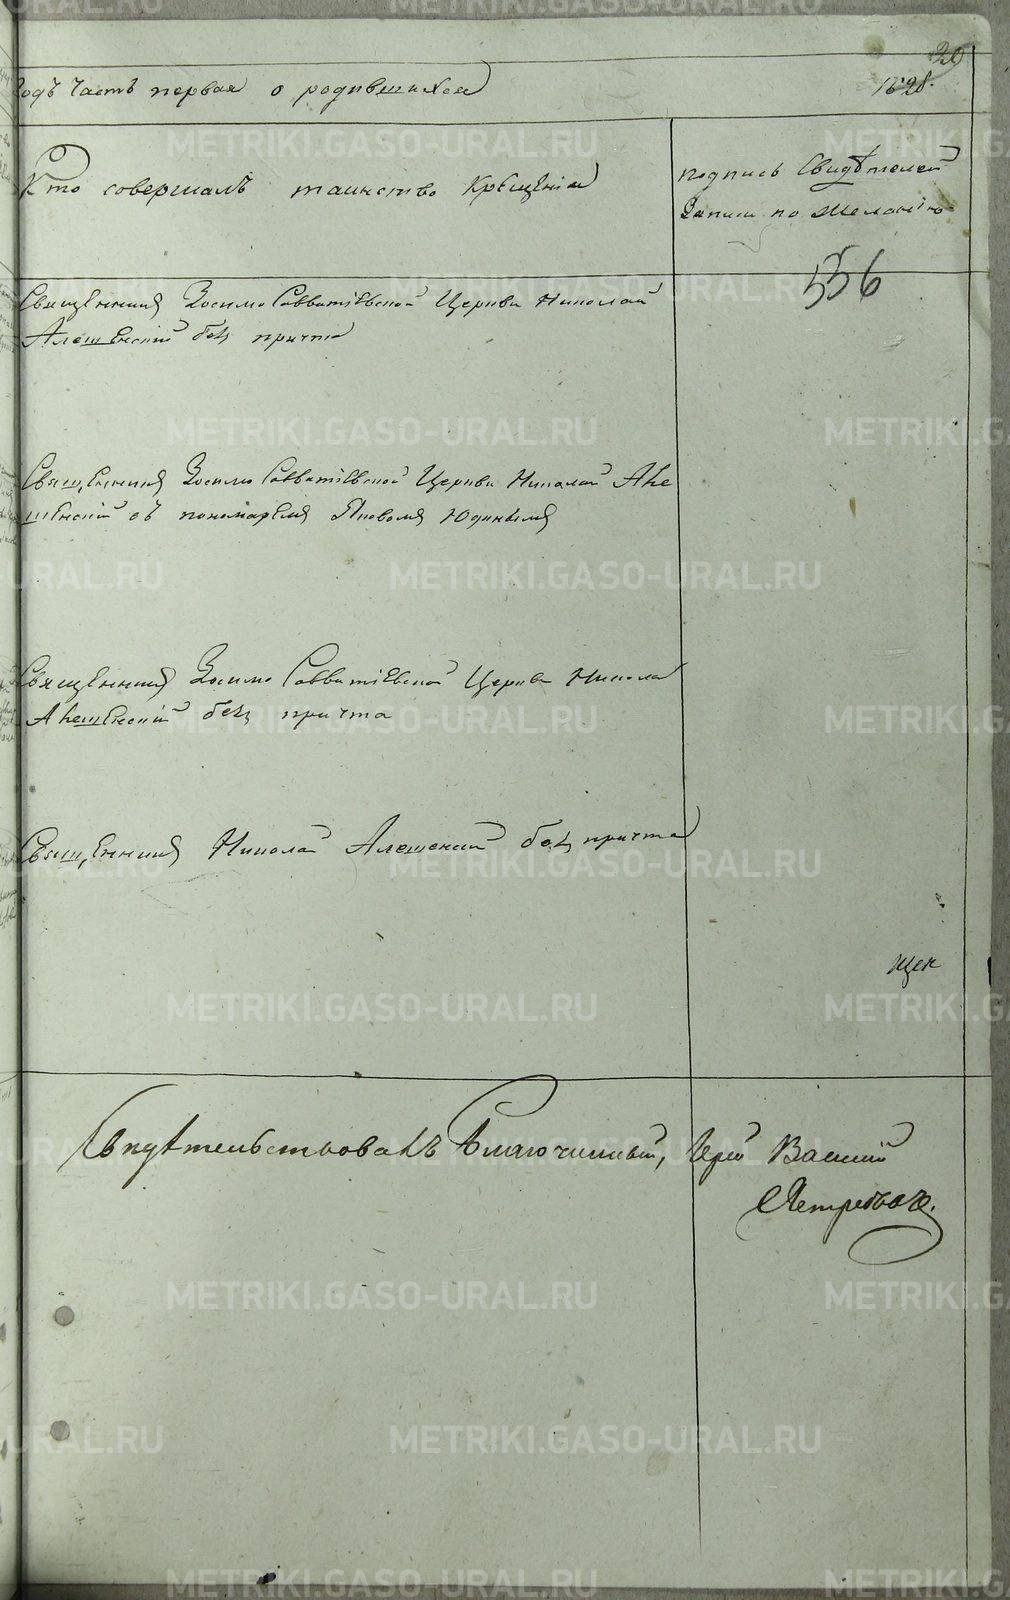 29
годъ Часть первая о родившихся
1528.
Кто совершалъ таинство Крещенія
подпись Свидѣтелей
Записи по Желанію
556
Священникъ Зосимо Савватіевской Церкви Николай
Алешенскій без причта
Священникъ Зосимо Савватіевской Церкви Николай Але
шенскій съ пономаремъ Яковомъ Юдинымъ
Священникъ Зосимо Савватіевской Церкви Никола
Алешенскій без причта
Священникъ Николай Алешенскій без причта
Свидѣтельствовалъ Благочинный, Іерей Василій
METRIKI.GASO-URAL.RU